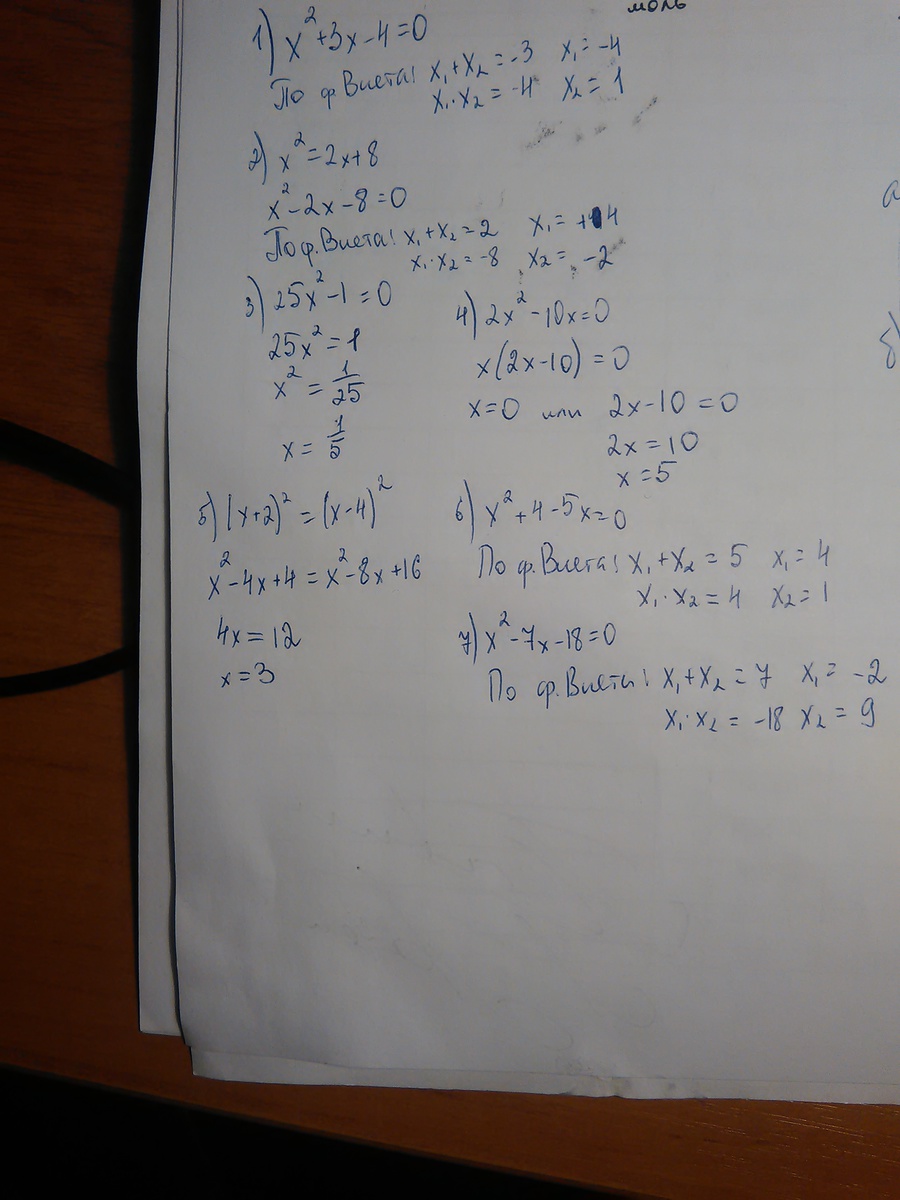 моль
1) x² + 3x - 4 = 0
По ф. Виета: x₁ + x₂ = -3 x₁ = -4
x₁ · x₂ = -4 x₂ = 1
2) x² = 2x + 8
x² - 2x - 8 = 0
По ф. Виета: x₁ + x₂ = 2 x₁ = +4
x₁ · x₂ = -8 x₂ = -2
3) 25x² - 1 = 0
25x² = 1
x² = 1/25
x = 1/5
4) 2x² - 10x = 0
x(2x - 10) = 0
x = 0 или 2x - 10 = 0
2x = 10
x = 5
5) (x + 2)² = (x - 4)²
x² - 4x + 4 = x² - 8x + 16
4x = 12
x = 3
6) x² + 4 - 5x = 0
По ф. Виета: x₁ + x₂ = 5 x₁ = 4
x₁ · x₂ = 4 x₂ = 1
7) x² - 7x - 18 = 0
По ф. Виета: x₁ + x₂ = 7 x₁ = -2
x₁ · x₂ = -18 x₂ = 9